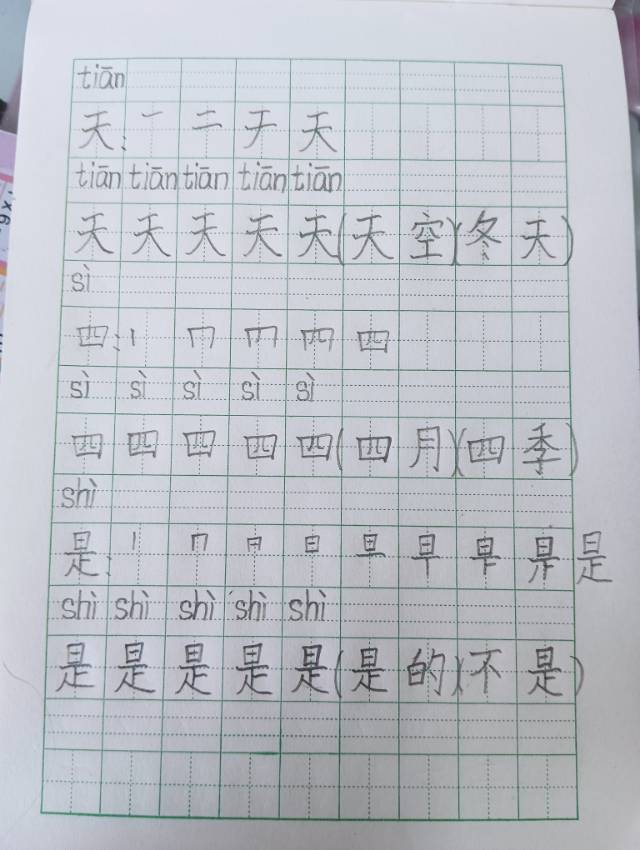 tiān
天: 一 二 チ 天
tiān tiān tiān tiān tiān
天 天 天 天 天(天空)(冬天)
sì
四: 丨 冂 四
sì sì sì sì sì
四 四 四 四 四(四月)(四季)
shì
是: 丨 冂 日 日 旦 早 是
shì shì shì shì shì
是 是 是 是 是(是的)(不是)